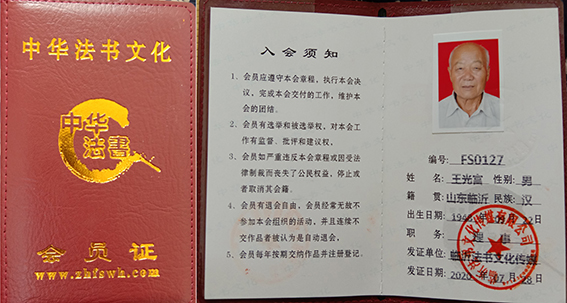 中华法书文化
中华
法書
会员证
www.zhfswh.com
入会须知
1、会员应遵守本会章程，执行本会决
议，完成本会交付的工作，维护本会
的团结。
2、会员有选举和被选举权，对本会工
作有监督、批评和建议权。
3、会员如严重违反本会章程或因受法
律制裁而丧失了公民权益，停止或
者取消其会籍。
4、会员有退会自由，会员经常无故不
参加本会组织的活动，并且连续不
交作品者被认为是自动退会。
5、会员每年按期交纳作品并注册登记。
编号: FS0127
姓名: 王光富 性别: 男
籍贯: 山东临沂 民族: 汉
出生日期:
职务: 理事
发证单位: 临沂法书文化传媒
发证日期: 2020年07月28日